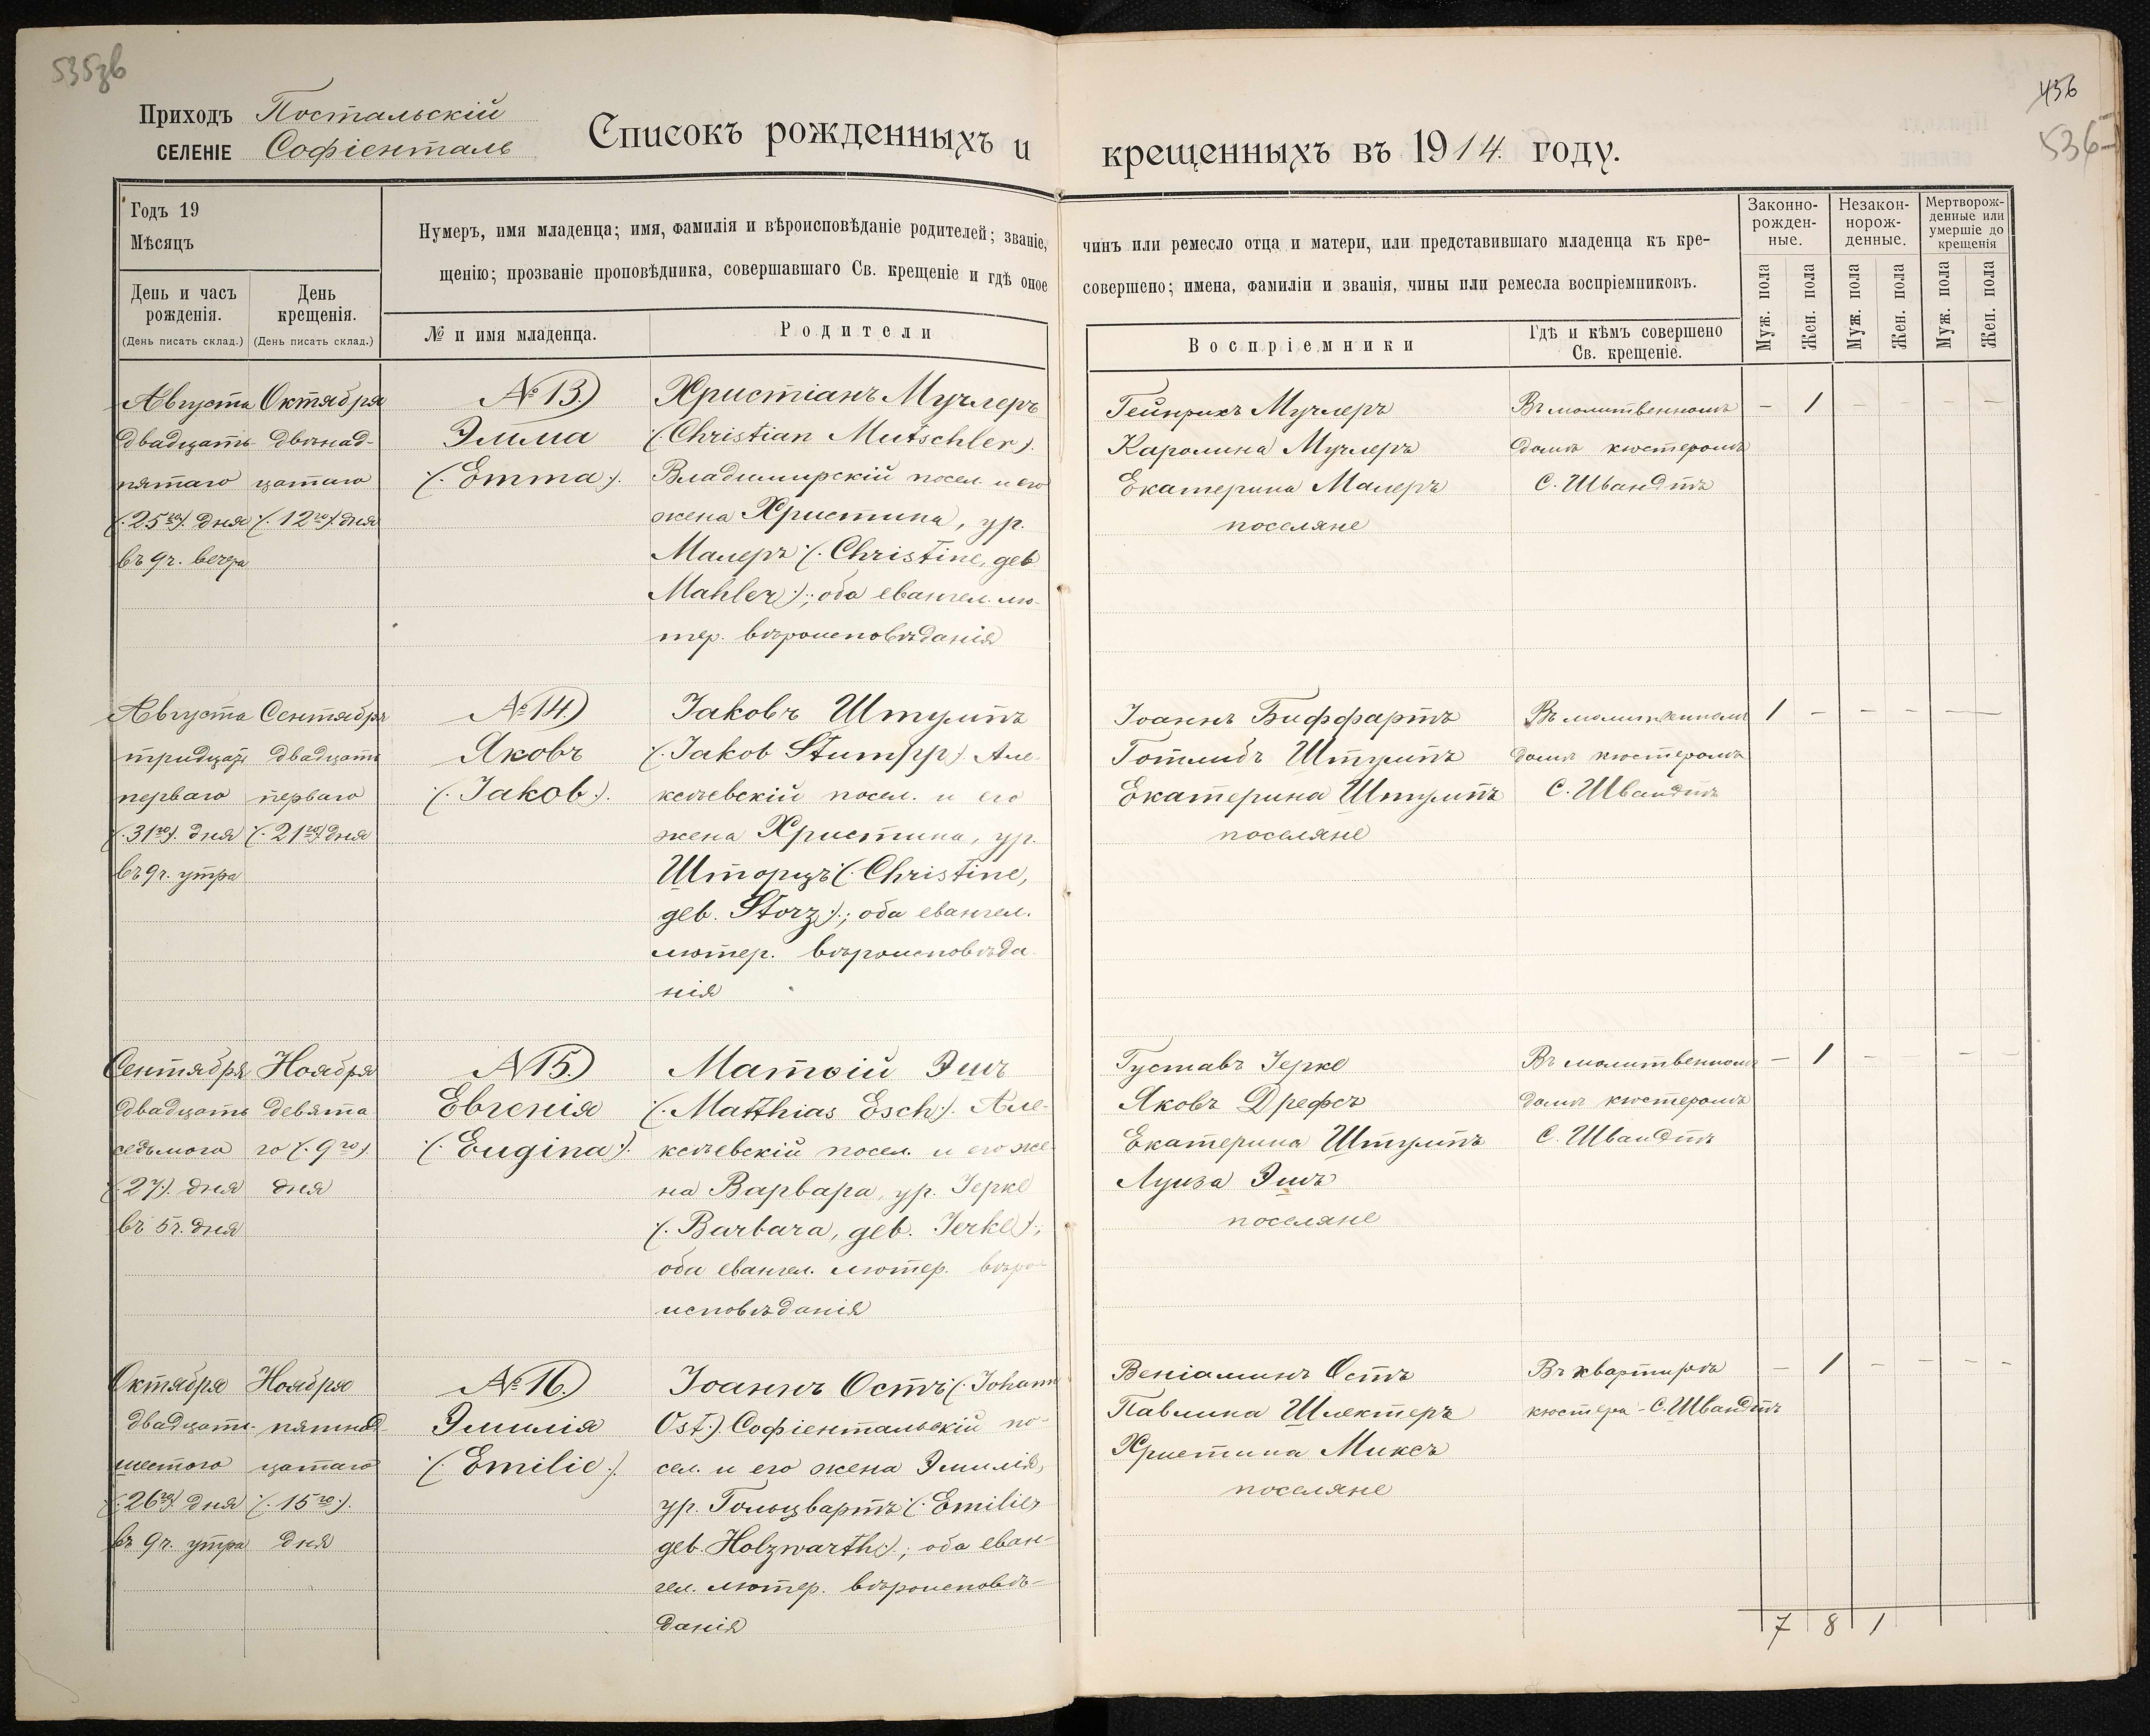 535зв
456
536
Приходъ Постальскій
СЕЛЕНІЕ Софіенталь
Списокъ рожденныхъ и крещенныхъ въ 1914. году.
Годъ 19
Мѣсяцъ
День и часъ рожденія.
(День писать склад.)
День крещенія.
(День писать склад.)
Нумеръ, имя младенца; имя, фамилія и вѣроисповѣданіе родителей; званіе, чинъ или ремесло отца и матери, или представившаго младенца къ кре-
щенію; прозваніе проповѣдника, совершавшаго Св. крещеніе и гдѣ оное совершено; имена, фамиліи и званія, чины или ремесла воспріемниковъ.
№ и имя младенца.
Родители
Воспріемники
Гдѣ и кѣмъ совершено
Св. крещеніе.
Законно-
рожден-
ные.
Незакон-
норож-
денные.
Мертворож-
денные или
умершіе до
крещенія
Муж. пола
Жен. пола
Муж. пола
Жен. пола
Муж. пола
Жен. пола
Августа
двадцать
пятаго
(:25го:) дня
въ 9 ч. вечера
Октября
двѣнад-
цатаго
(:12го:) дня
№ 13.)
Эмма
(:Emma:).
Христіанъ Мучлеръ
(:Christian Mutschler:)
Владимирскій посел. и его
жена Христина, ур.
Малеръ (:Christine, geb
Mahler:); оба евангел. лю-
тер. вѣроисповѣданія
Гейнрихъ Мучлеръ
Каролина Мучлеръ
Екатерина Малеръ
поселяне
Въ молитвенномъ
домѣ кюстеромъ
С. Швандтъ
— 1 — — — —
Августа
тридцать
перваго
(:31го:) дня
въ 9 ч. утра
Сентября
двадцать
перваго
(:21го:) дня
№ 14.)
Яковъ
(:Jakob:).
Іаковъ Штумпъ
(:Jakob Stumpp:) Але-
ксѣевскій посел. и его
жена Христина, ур.
Шторцъ (:Christine,
geb. Storz:); оба евангел.
лютер. вѣроисповѣда-
нія
Іоаннъ Биффартъ
Готлибъ Штумпъ
Екатерина Штумпъ
поселяне
Въ молитвенномъ
домѣ кюстеромъ
С. Швандтъ
1 — — — — —
Сентября
двадцать
седьмого
(:27:) дня
въ 5 ч. дня
Ноября
девята
го (:9го:)
дня
№ 15.)
Евгенія
(:Eugina:).
Матѳій Эшъ
(:Matthias Esch:). Але-
ксѣевскій посел. и его же-
на Варвара, ур. Іерке
(:Barbara, geb. Jerke:);
оба евангел. лютер. вѣро-
исповѣданія
Густавъ Іерке
Яковъ Дрефсъ
Екатерина Штумпъ
Луиза Эшъ
поселяне
Въ молитвенномъ
домѣ кюстеромъ
С. Швандтъ
— 1 — — —
Октября
двадцать
шестого
(:26го:) дня
въ 9 ч. утра
Ноября
пятнад-
цатаго
(:15го:).
дня
№ 16.)
Эмилія
(:Emilie:).
Іоаннъ Остъ (:Johann
Ost:) Софіентальскій по-
сел. и его жена Эмилія,
ур. Гольцвартъ (:Emilie
geb. Holzwarth:); оба еван-
гел. лютер. вѣроисповѣ-
данія
Веніаминъ Остъ
Павлина Шлектеръ
Христина Миксъ
поселяне
Въ квартирѣ
кюстера - С. Швандтъ
— 1 — — — —
7 8 1